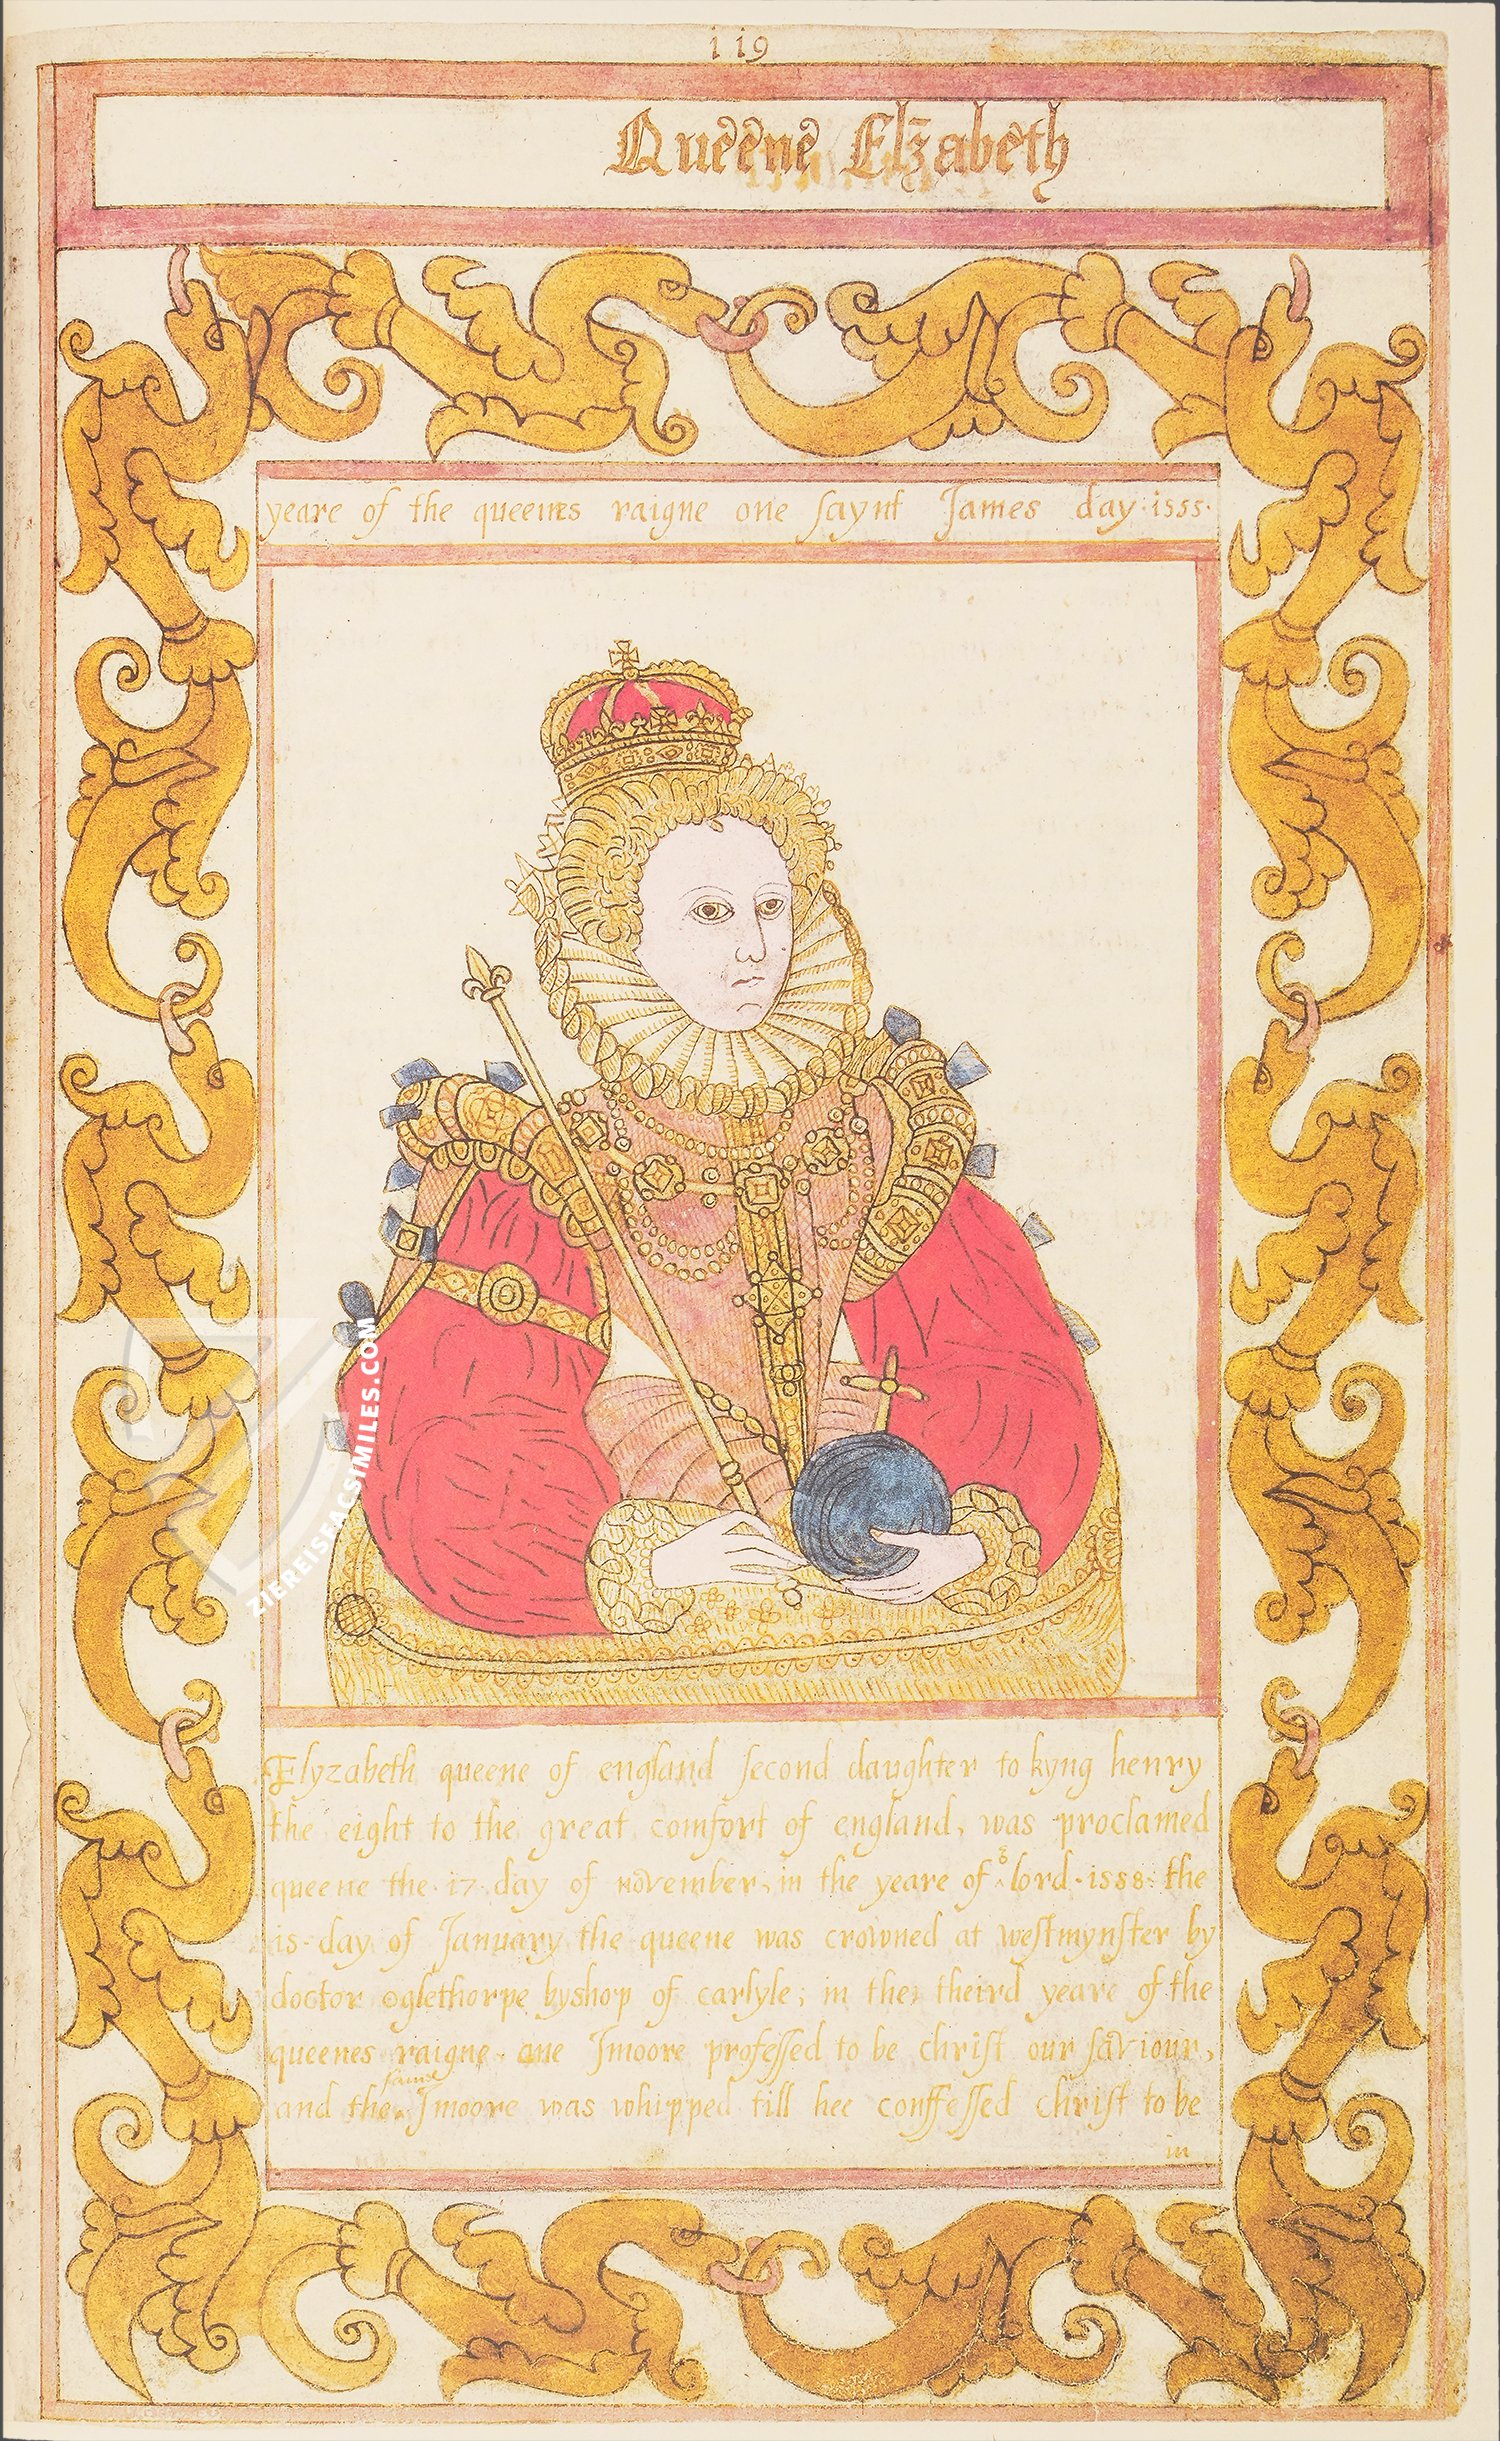 119
Queene Elzabeth
yeare of the queenes raigne one saynt James day·1555·
Elyzabeth queene of england second daughter to kyng henry
the eight to the great comfort of england, was proclamed
queene the·17·day of november, in the yeare of lord·1558·the
15·day of January the queene was crowned at westmynster by
doctor oglethorpe byshop of carlyle, in the theird yeare of the
queenes raigne· one Jmoore professed to be christ our saviour,
and the same Jmoore was whipped till hee conffessed christ to be
in
ZIEREISFACSIMILES.COM